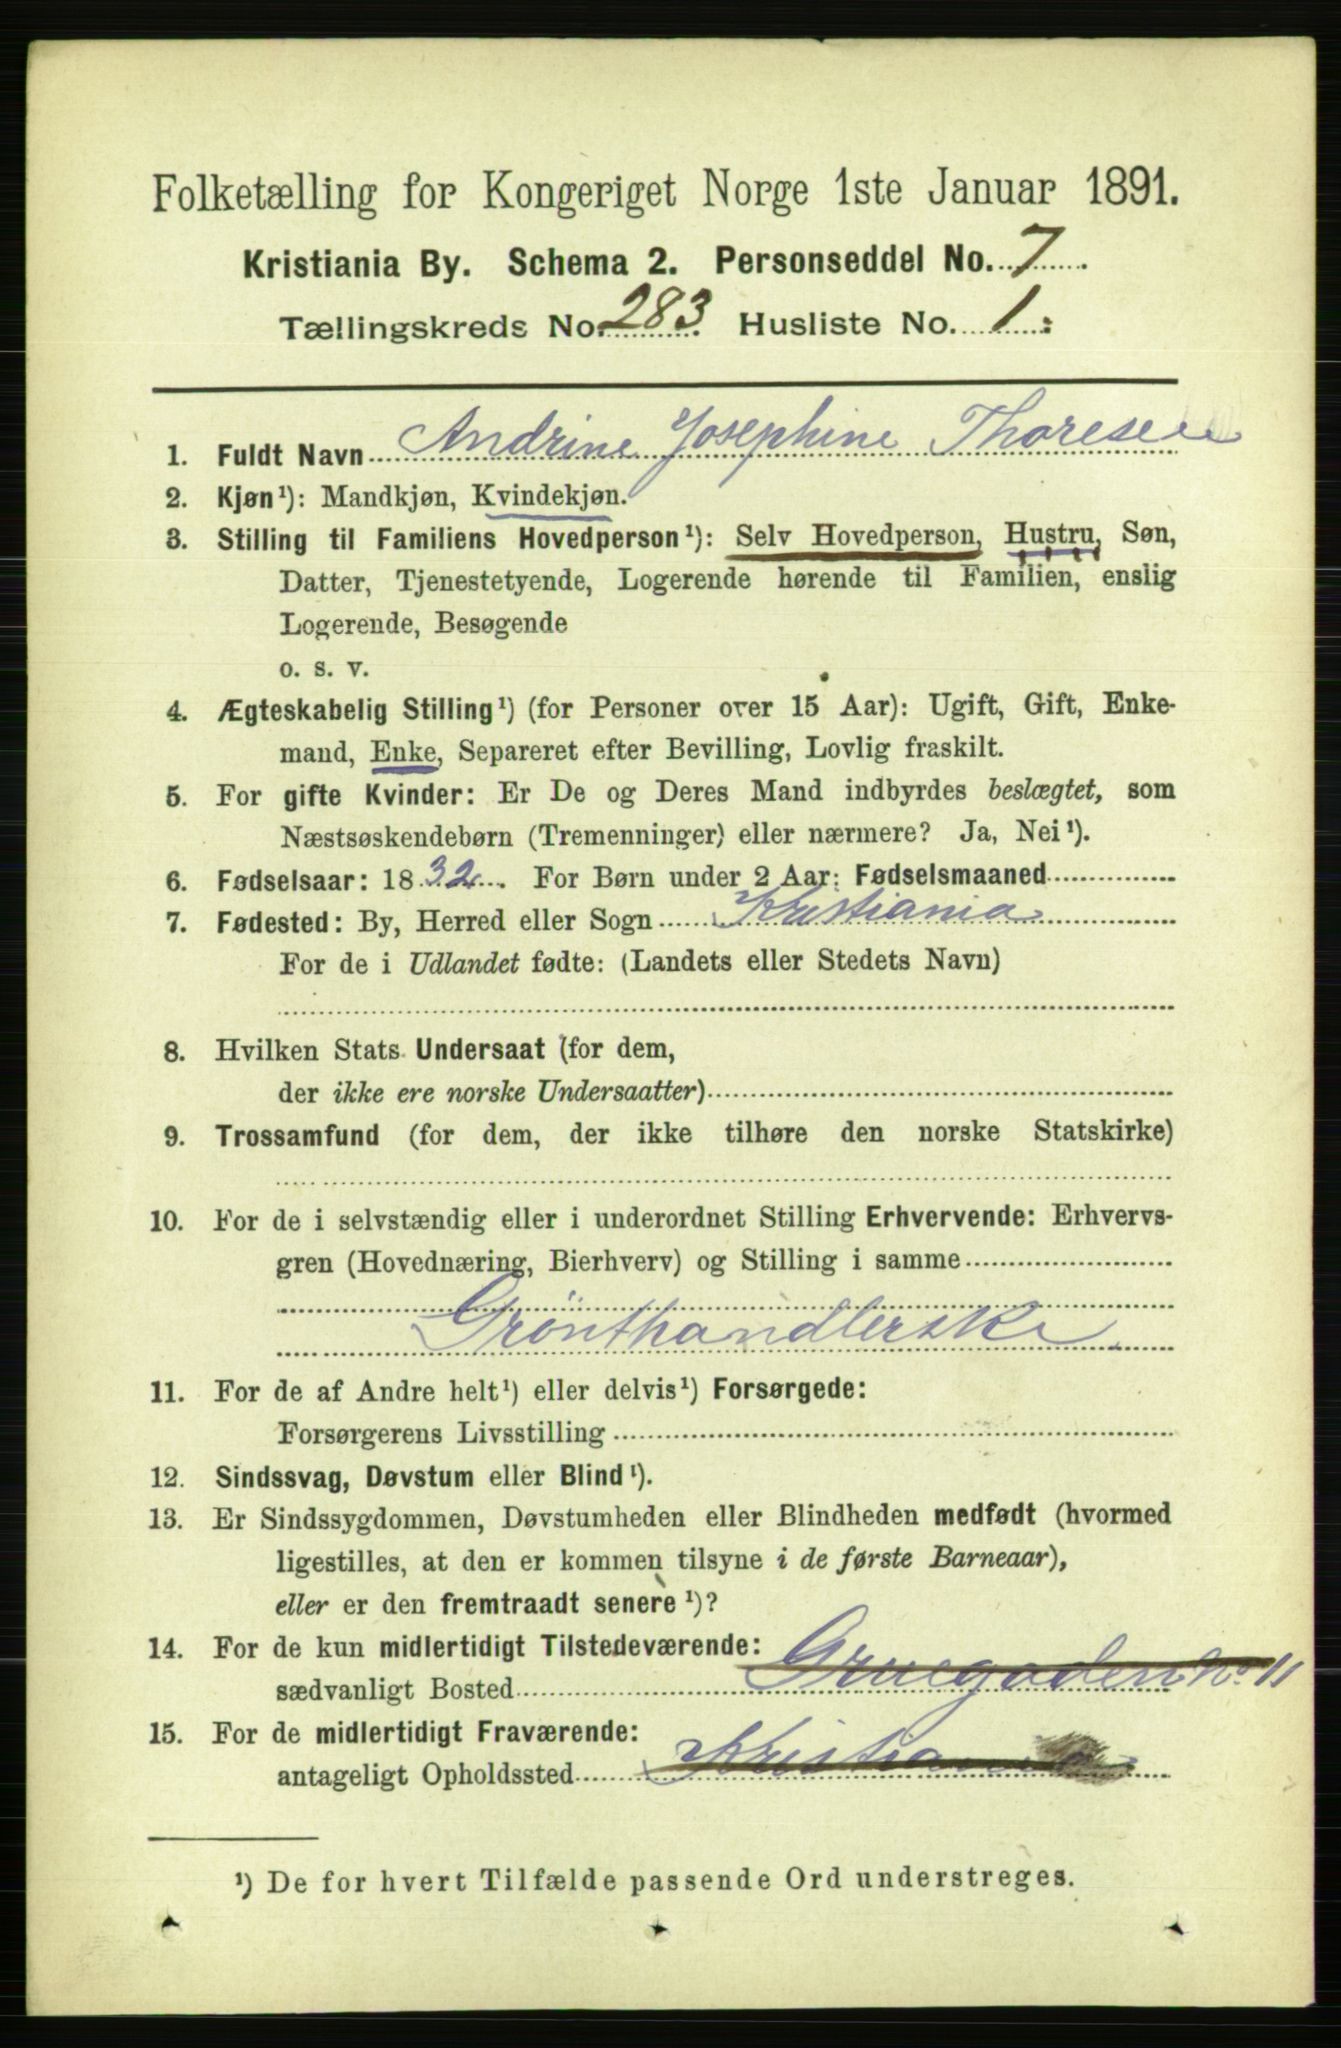 Folketælling for Kongeriget Norge 1ste Januar 1891.
Kristiania By. Schema 2. Personseddel No. 7
Tællingskreds No. 283 Husliste No. 1.
1. Fuldt Navn Andrine Josephine Thoresen
2. Kjøn¹): Mandkjøn, Kvindekjøn.
3. Stilling til Familiens Hovedperson¹): Selv Hovedperson, Hustru, Søn,
Datter, Tjenestetyende, Logerende hørende til Familien, enslig
Logerende, Besøgende
o. s. v.
4. Ægteskabelig Stilling¹) (for Personer over 15 Aar): Ugift, Gift, Enke-
mand, Enke, Separeret efter Bevilling, Lovlig fraskilt.
5. For gifte Kvinder: Er De og Deres Mand indbyrdes beslægtet, som
Næstsøskendebørn (Tremenninger) eller nærmere? Ja, Nei¹).
6. Fødselsaar: 1832. For Børn under 2 Aar: Fødselsmaaned
7. Fødested: By, Herred eller Sogn Kristiania
For de i Udlandet fødte: (Landets eller Stedets Navn)
8. Hvilken Stats Undersaat (for dem,
der ikke ere norske Undersaatter)
9. Trossamfund (for dem, der ikke tilhøre den norske Statskirke)
10. For de i selvstændig eller i underordnet Stilling Erhvervende: Erhvervs-
gren (Hovednæring, Bierhverv) og Stilling i samme
Grønthandlerske
11. For de af Andre helt¹) eller delvis¹) Forsørgede:
Forsørgerens Livsstilling
12. Sindssvag, Døvstum eller Blind¹).
13. Er Sindssygdommen, Døvstumheden eller Blindheden medfødt (hvormed
ligestilles, at den er kommen tilsyne i de første Barneaar),
eller er den fremtraadt senere¹)?
14. For de kun midlertidigt Tilstedeværende:
sædvanligt Bosted Gruegaden No 11
15. For de midlertidigt Fraværende:
antageligt Opholdssted Kristiania
¹) De for hvert Tilfælde passende Ord understreges.